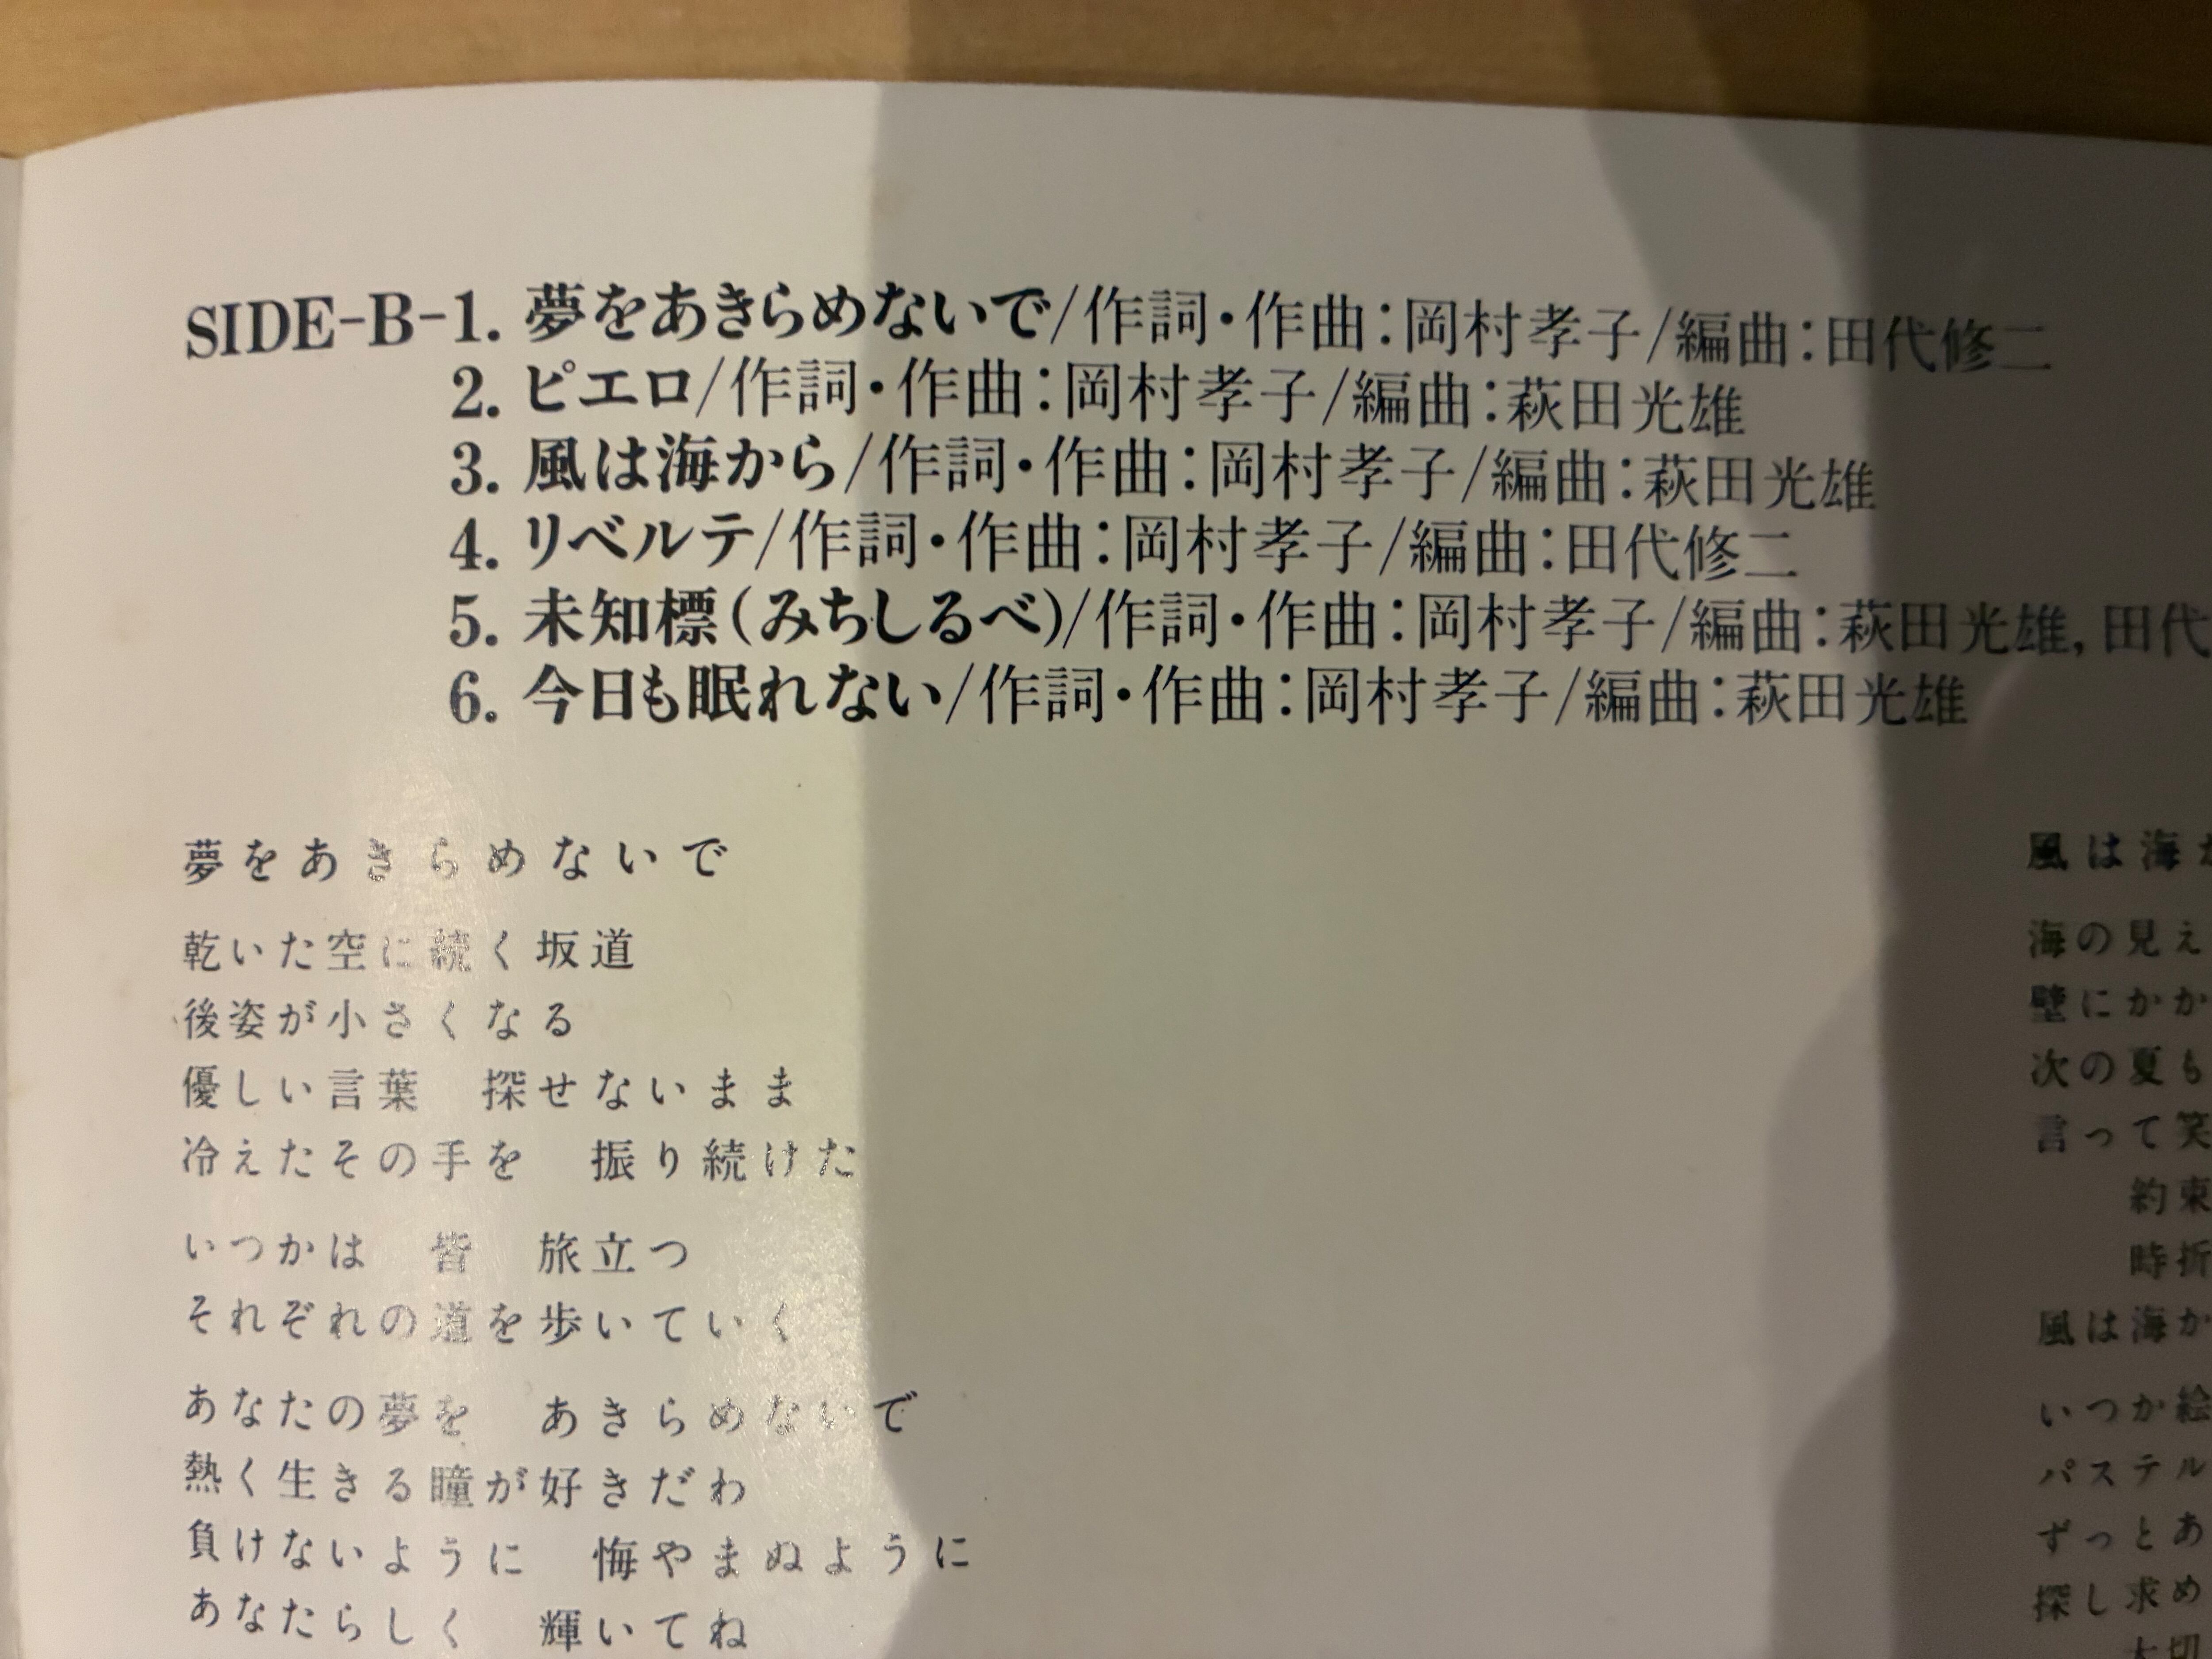 SIDE-B-1. 夢をあきらめないで/作詞・作曲：岡村孝子/編曲：田代修二
2. ピエロ/作詞・作曲：岡村孝子/編曲：萩田光雄
3. 風は海から/作詞・作曲：岡村孝子/編曲：萩田光雄
4. リベルテ/作詞・作曲：岡村孝子/編曲：田代修二
5. 未知標(みちしるべ)/作詞・作曲：岡村孝子/編曲：萩田光雄, 田代
6. 今日も眠れない/作詞・作曲：岡村孝子/編曲：萩田光雄
夢をあきらめないで
乾いた空に続く坂道
後姿が小さくなる
優しい言葉　探せないまま
冷えたその手を　振り続けた
いつかは　皆　旅立つ
それぞれの道を歩いていく
あなたの夢を　あきらめないで
熱く生きる瞳が好きだわ
負けないように　悔やまぬように
あなたらしく　輝いてね
風は海
海の見え
壁にかか
次の夏も
言って笑
約束
時折
風は海か
いつか絵
パステル
ずっとあ
探し求め